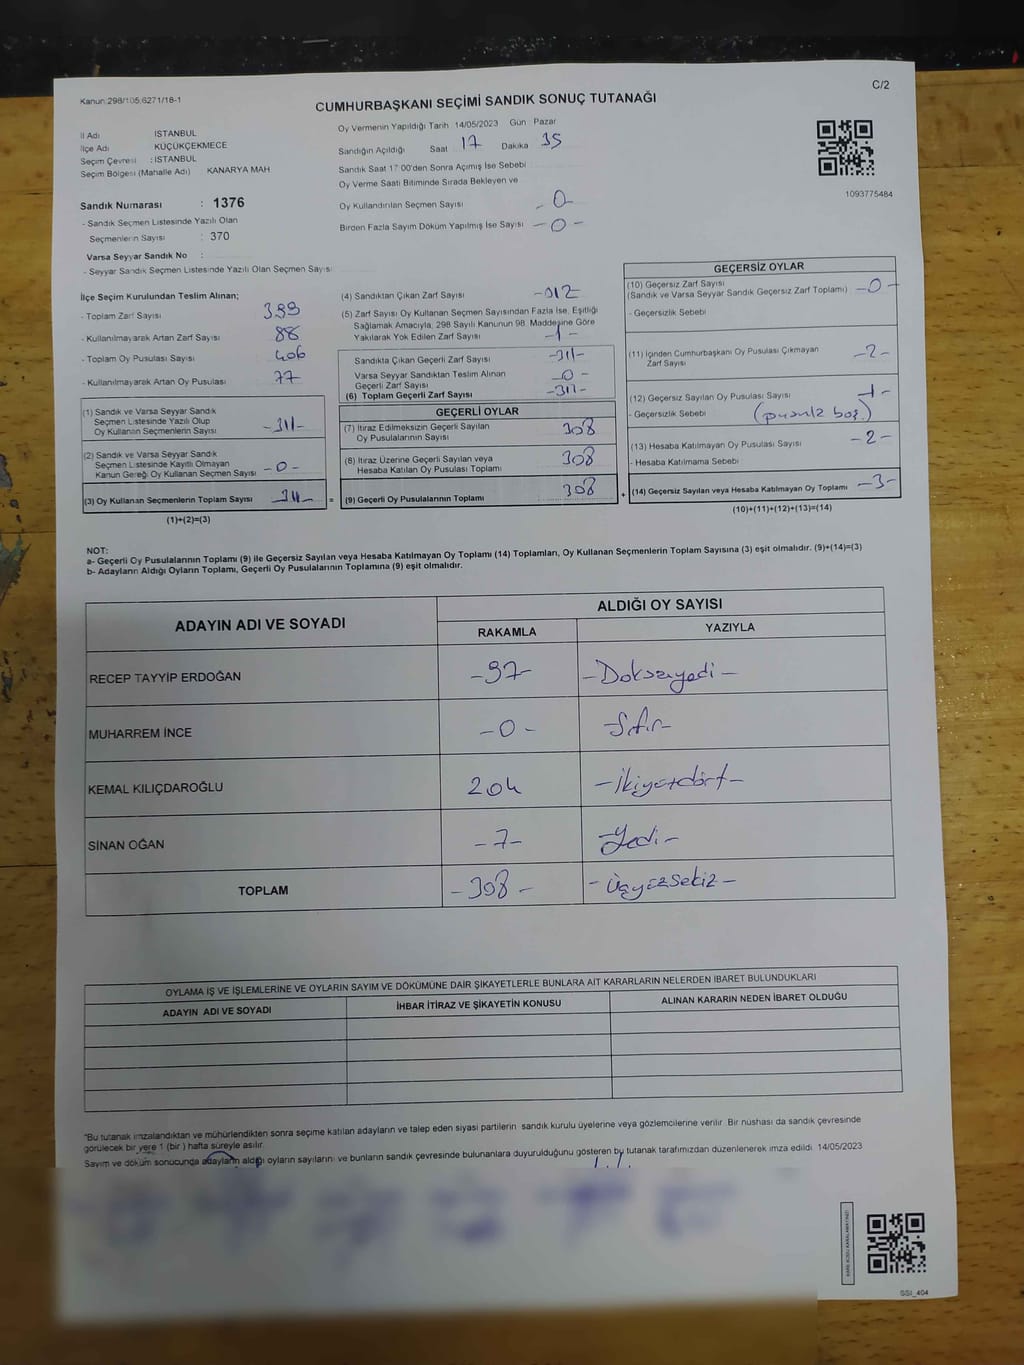 Kanun:298/105,6271/18-1
C/2
CUMHURBAŞKANI SEÇİMİ SANDIK SONUÇ TUTANAĞI
İl Adı İSTANBUL
İlçe Adı KÜÇÜKÇEKMECE
Seçim Çevresi : İSTANBUL
Seçim Bölgesi (Mahalle Adı) KANARYA MAH
Sandık Numarası : 1376
- Sandık Seçmen Listesinde Yazılı Olan
Seçmenlerin Sayısı : 370
Varsa Seyyar Sandık No :
- Seyyar Sandık Seçmen Listesinde Yazılı Olan Seçmen Sayısı
Oy Vermenin Yapıldığı Tarih 14/05/2023 Gün Pazar
Sandığın Açıldığı Saat 17 Dakika 35
Sandık Saat 17:00'den Sonra Açımış İse Sebebi
Oy Verme Saati Bitiminde Sırada Bekleyen ve
Oy Kullandırılan Seçmen Sayısı - 0 -
Birden Fazla Sayım Döküm Yapılmış İse Sayısı - 0 -
1093775484
İlçe Seçim Kurulundan Teslim Alınan;
- Toplam Zarf Sayısı 399
- Kullanılmayarak Artan Zarf Sayısı 88
- Toplam Oy Pusulası Sayısı 406
- Kullanılmayarak Artan Oy Pusulası 77
(1) Sandık ve Varsa Seyyar Sandık
Seçmen Listesinde Yazılı Olup
Oy Kullanan Seçmenlerin Sayısı -311-
(2) Sandık ve Varsa Seyyar Sandık
Seçmen Listesinde Kayıtlı Olmayan
Kanun Gereği Oy Kullanan Seçmen Sayısı -0-
(3) Oy Kullanan Seçmenlerin Toplam Sayısı -311- =
(1)+(2)=(3)
(4) Sandıktan Çıkan Zarf Sayısı -312
(5) Zarf Sayısı Oy Kullanan Seçmen Sayısından Fazla İse, Eşitliği
Sağlamak Amacıyla, 298 Sayılı Kanunun 98. Maddesine Göre
Yakılarak Yok Edilen Zarf Sayısı -1-
Sandıkta Çıkan Geçerli Zarf Sayısı -311-
Varsa Seyyar Sandıktan Teslim Alınan
Geçerli Zarf Sayısı -0-
(6) Toplam Geçerli Zarf Sayısı -311-
GEÇERLİ OYLAR
(7) İtiraz Edilmeksizin Geçerli Sayılan
Oy Pusulalarının Sayısı 308
(8) İtiraz Üzerine Geçerli Sayılan veya
Hesaba Katılan Oy Pusulası Toplamı 308
(9) Geçerli Oy Pusulalarının Toplamı 308 +
GEÇERSİZ OYLAR
(10) Geçersiz Zarf Sayısı
(Sandık ve Varsa Seyyar Sandık Geçersiz Zarf Toplamı) -0-
- Geçersizlik Sebebi
(11) İçinden Cumhurbaşkanı Oy Pusulası Çıkmayan
Zarf Sayısı -2-
(12) Geçersiz Sayılan Oy Pusulası Sayısı -1-
- Geçersizlik Sebebi (pusula boş.)
(13) Hesaba Katılmayan Oy Pusulası Sayısı -2-
- Hesaba Katılmama Sebebi
(14) Geçersiz Sayılan veya Hesaba Katılmayan Oy Toplamı -3-
(10)+(11)+(12)+(13)=(14)
NOT:
a- Geçerli Oy Pusulalarının Toplamı (9) ile Geçersiz Sayılan veya Hesaba Katılmayan Oy Toplamı (14) Toplamları, Oy Kullanan Seçmenlerin Toplam Sayısına (3) eşit olmalıdır. (9)+(14)=(3)
b- Adayların Aldığı Oyların Toplamı, Geçerli Oy Pusulalarının Toplamına (9) eşit olmalıdır.
ADAYIN ADI VE SOYADI
ALDIĞI OY SAYISI
RAKAMLA YAZIYLA
RECEP TAYYİP ERDOĞAN -97- -Doksanyedi-
MUHARREM İNCE -0- -Sıfır-
KEMAL KILIÇDAROĞLU 204 -İkiyüzdört-
SİNAN OĞAN -7- -Yedi-
TOPLAM -308- -Üçyüzsekiz-
OYLAMA İŞ VE İŞLEMLERİNE VE OYLARIN SAYIM VE DÖKÜMÜNE DAİR ŞİKAYETLERLE BUNLARA AİT KARARLARIN NELERDEN İBARET BULUNDUKLARI
ADAYIN ADI VE SOYADI İHBAR İTİRAZ VE ŞİKAYETİN KONUSU ALINAN KARARIN NEDEN İBARET OLDUĞU
"Bu tutanak imzalandıktan ve mühürlendikten sonra seçime katılan adayların ve talep eden siyasi partilerin sandık kurulu üyelerine veya gözlemcilerine verilir. Bir nüshası da sandık çevresinde
görülecek bir yere 1 (bir) hafta süreyle asılır.
Sayım ve döküm sonucunda adayların aldığı oyların sayılarını ve bunların sandık çevresinde bulunanlara duyurulduğunu gösteren bu tutanak tarafımızdan düzenlenerek imza edildi. 14/05/2023
SSİ_404